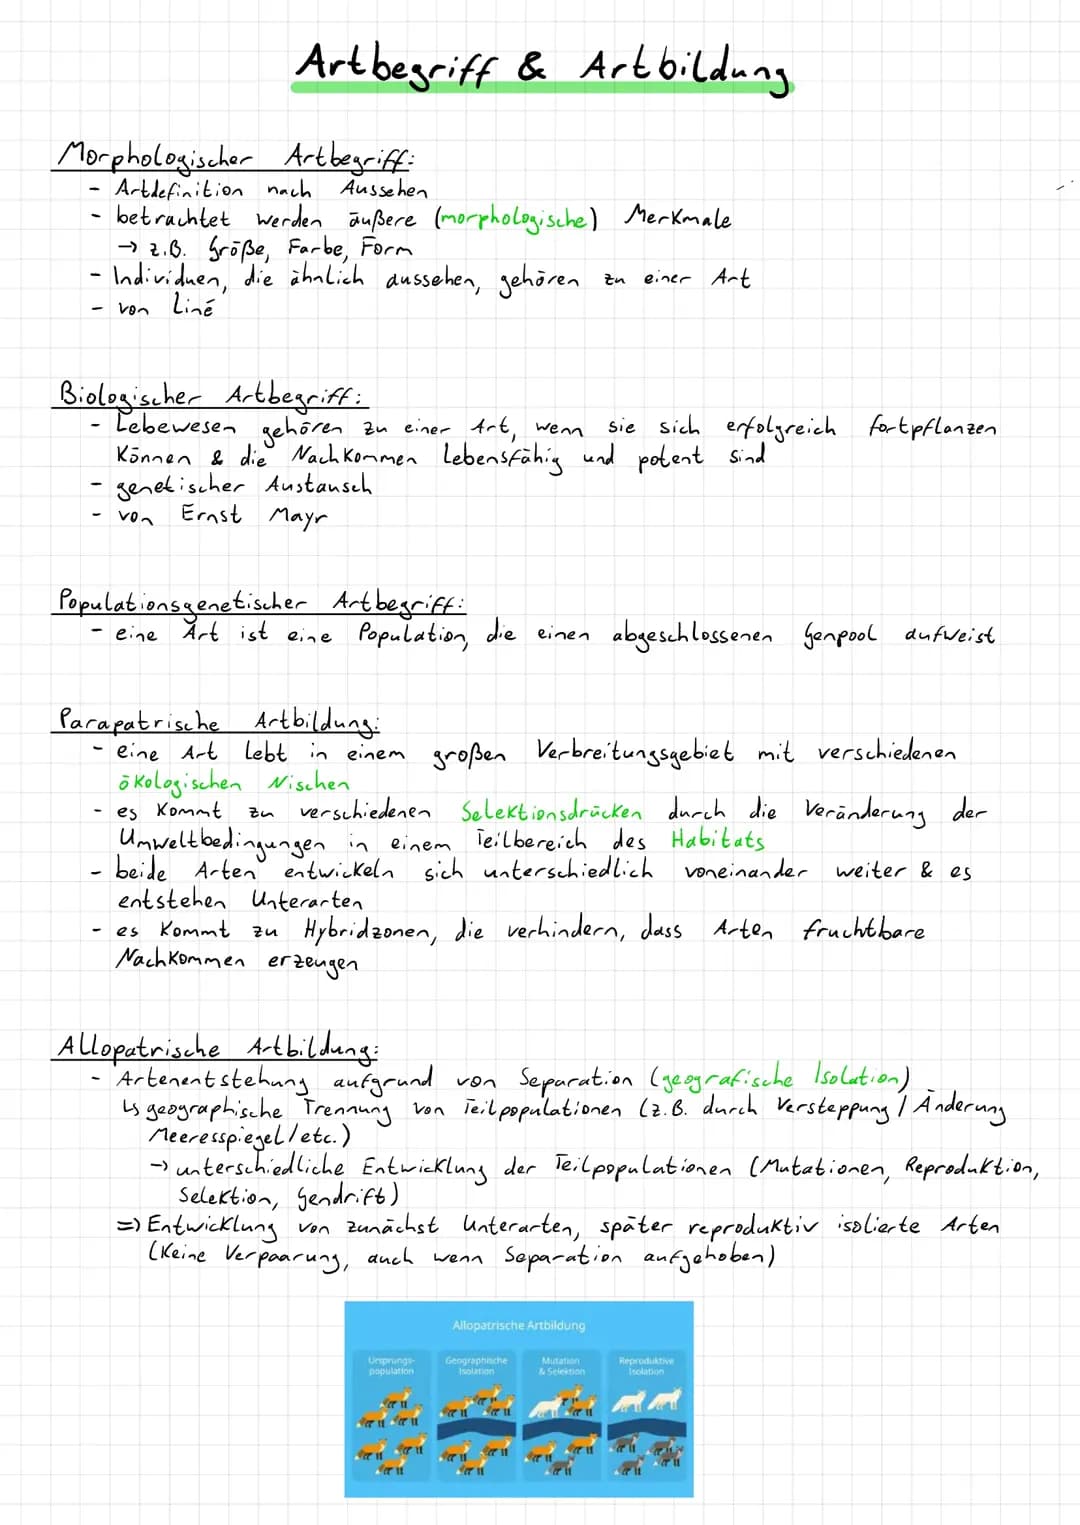 Artbegriff & Artbildung
Morphologischer Artbegriff:
- Artdefinition nach Aussehen
- betrachtet werden äußere (morphologische) Merkmale
→ z.B. Größe, Farbe, Form
- Individuen, die ähnlich aussehen, gehören zu einer Art
- von Liné
Biologischer Artbegriff:
- Lebewesen gehören zu einer Art, wenn sie sich erfolgreich fortpflanzen
können & die Nachkommen lebensfähig und potent sind
- genetischer Austausch
- von Ernst Mayr
Populationsgenetischer Artbegriff:
- eine Art ist eine Population, die einen abgeschlossenen Genpool aufweist
Parapatrische Artbildung:
- eine Art lebt in einem großen Verbreitungsgebiet mit verschiedenen
ökologischen Nischen
- es kommt zu verschiedenen Selektionsdrücken durch die Veränderung der
Umweltbedingungen in einem Teilbereich des Habitats
- beide Arten entwickeln sich unterschiedlich voneinander weiter & es
entstehen Unterarten
- es kommt zu Hybridzonen, die verhindern, dass Arten fruchtbare
Nachkommen erzeugen
Allopatrische Artbildung:
- Artenentstehung aufgrund von Separation (geografische Isolation)
↳ geographische Trennung von Teilpopulationen (z.B. durch Versteppung / Änderung
Meeresspiegel/etc.)
→ unterschiedliche Entwicklung der Teilpopulationen (Mutationen, Reproduktion,
Selektion, Gendrift)
⇒ Entwicklung von zunächst Unterarten, später reproduktiv isolierte Arten
(keine Verpaarung, auch wenn Separation aufgehoben)
Allopatrische Artbildung
Ursprungs-
population
Geographische
Isolation
Mutation
& Selektion
Reproduktive
Isolation